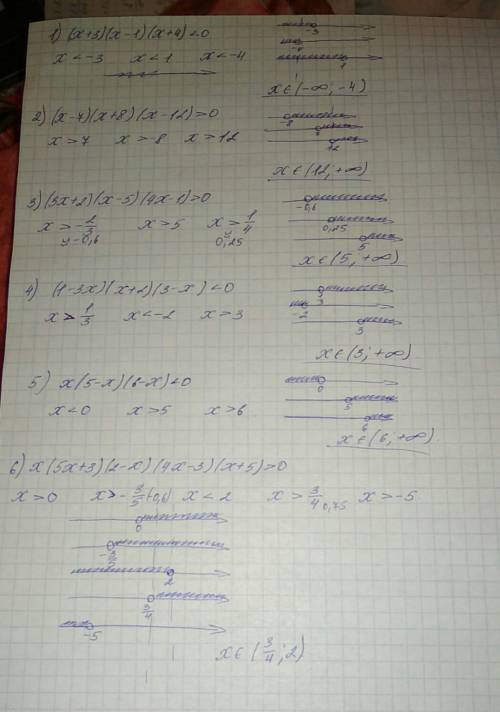 1) (x+3)(x-1)(x+4)<0
x<-3 x<1 x<-4
-3
-4
1
x∈(-∞,-4)
2) (x-7)(x+8)(x-12)>0
x>7 x>-8 x>12
-8
12
x∈(12;+∞)
3) (3x+2)(x-5)(4x-1)>0
x>-2/3 x>5 x>1/4
-0,6 0,25
-0,6
0,25
5
x∈(5;+∞)
4) (1-3x)(x+2)(3-x)<0
x>1/3 x<-2 x>3
-2
3
x∈(3;+∞)
5) x(5-x)(6-x)<0
x<0 x>5 x>6
0
5
6
x∈(6;+∞)
6) x(5x+3)(2-x)(4x-3)(x+5)>0
x>0 x>-3/5(-0,6) x<2 x>3/4 0,75 x>-5
0
2
3/4
-5
x∈(3/4;2)